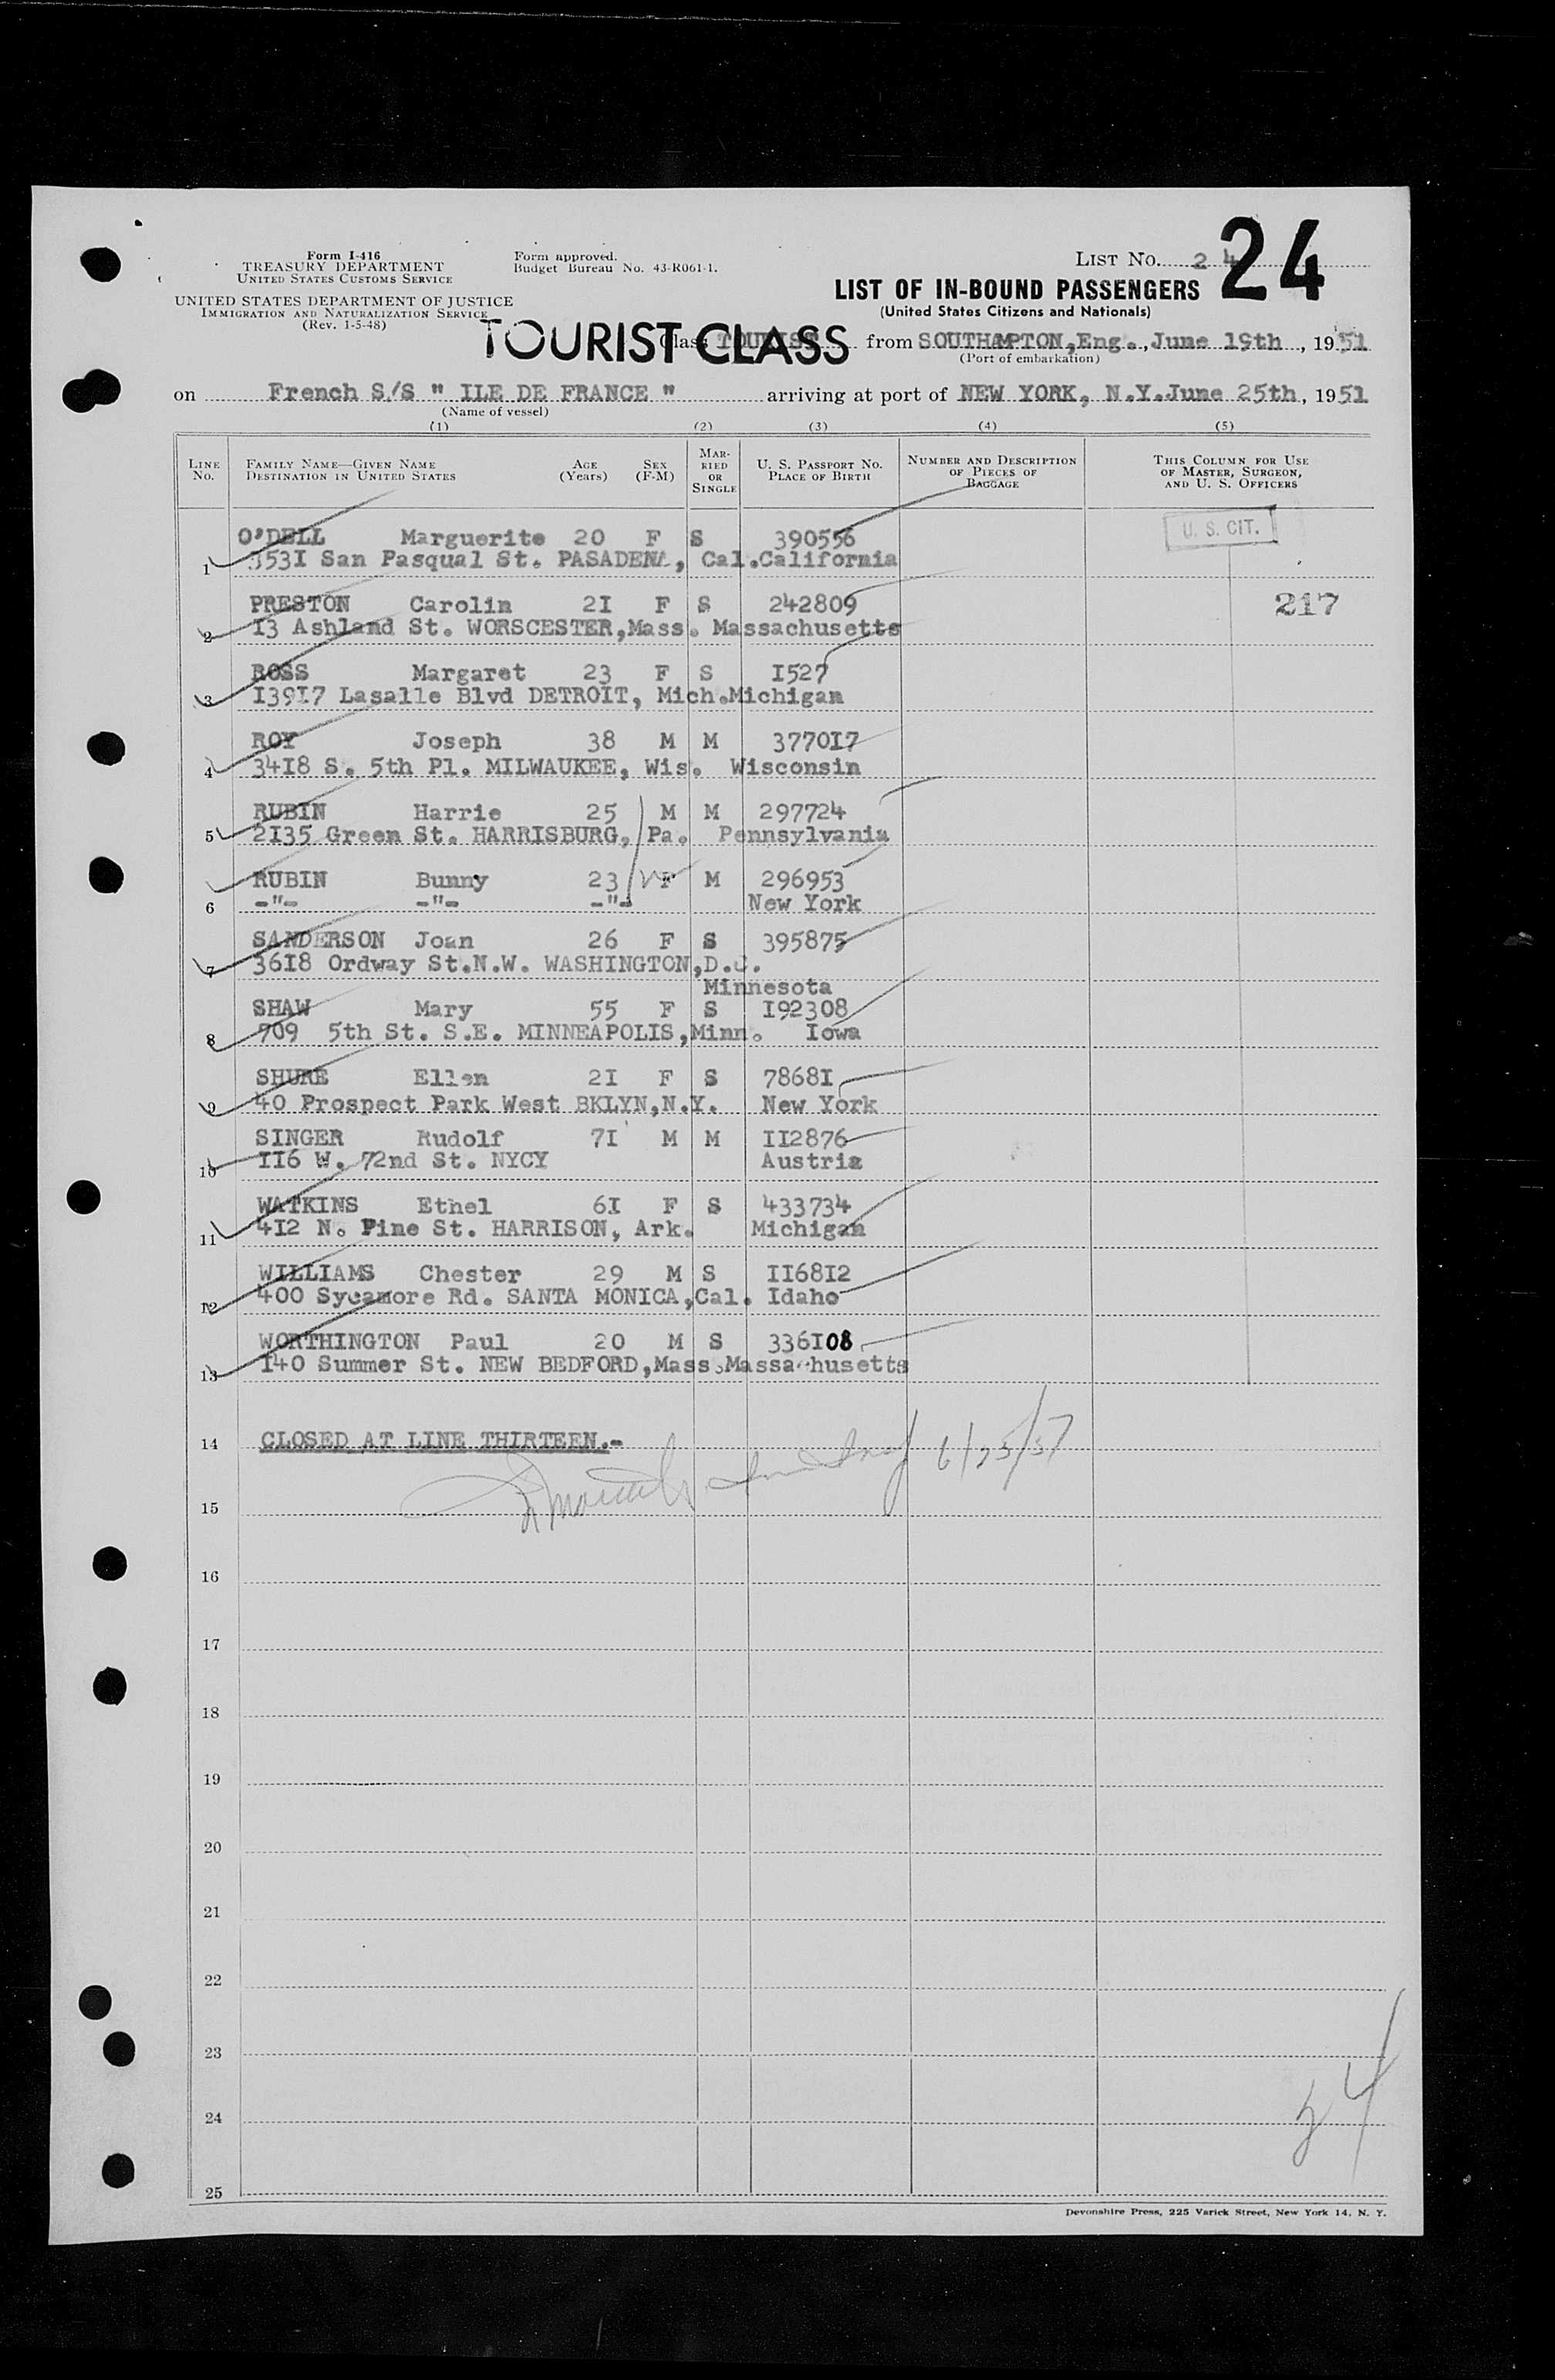 Form I-416
TREASURY DEPARTMENT
UNITED STATES CUSTOMS SERVICE
UNITED STATES DEPARTMENT OF JUSTICE
IMMIGRATION AND NATURALIZATION SERVICE
(Rev. 1-5-48)
Form approved.
Budget Bureau No. 43-R061-1.
LIST No. 24
24
LIST OF IN-BOUND PASSENGERS
(United States Citizens and Nationals)
TOURIST CLASS
Class TOURIST from SOUTHAMPTON,Eng.,June 19th, 1951
(Port of embarkation)
on French S/S " ILE DE FRANCE " arriving at port of NEW YORK, N.Y.June 25th, 1951
(Name of vessel)
(1) (2) (3) (4) (5)
LINE No.
FAMILY NAME—GIVEN NAME
DESTINATION IN UNITED STATES
AGE (Years)
SEX (F-M)
MARRIED OR SINGLE
U. S. PASSPORT No.
PLACE OF BIRTH
NUMBER AND DESCRIPTION OF PIECES OF BAGGAGE
THIS COLUMN FOR USE OF MASTER, SURGEON, AND U. S. OFFICERS
O'DELL Marguerite 20 F S 390556 U. S. CIT.
1 353I San Pasqual St. PASADENA, Cal.California
PRESTON Carolin 2I F S 242809 217
2 I3 Ashland St. WORSCESTER,Mass. Massachusetts
ROSS Margaret 23 F S I527
3 I39I7 Lasalle Blvd DETROIT, Mich.Michigan
ROY Joseph 38 M M 3770I7
4 34I8 S. 5th Pl. MILWAUKEE, Wis. Wisconsin
RUBIN Harrie 25 M M 297724
5 2I35 Green St. HARRISBURG, Pa. Pennsylvania
RUBIN Bunny 23 F M 296953
6 -"- -"- -"- New York
SANDERSON Joan 26 F S 395875
7 36I8 Ordway St.N.W. WASHINGTON,D.C.
Minnesota
SHAW Mary 55 F S I92308
8 709 5th St. S.E. MINNEAPOLIS,Minn. Iowa
SHURE Ellen 2I F S 7868I
9 40 Prospect Park West BKLYN,N.Y. New York
SINGER Rudolf 7I M M II2876
10 II6 W. 72nd St. NYCY Austria
WATKINS Ethel 6I F S 433734
11 4I2 N. Pine St. HARRISON, Ark. Michigan
WILLIAMS Chester 29 M S II68I2
12 400 Sycamore Rd. SANTA MONICA,Cal. Idaho
WORTHINGTON Paul 20 M S 336I08
13 I40 Summer St. NEW BEDFORD,Mass.Massachusetts
14 CLOSED AT LINE THIRTEEN.-
6/25/51
15
16
17
18
19
20
21
22
23
24
25
Devonshire Press, 225 Varick Street, New York 14, N. Y.